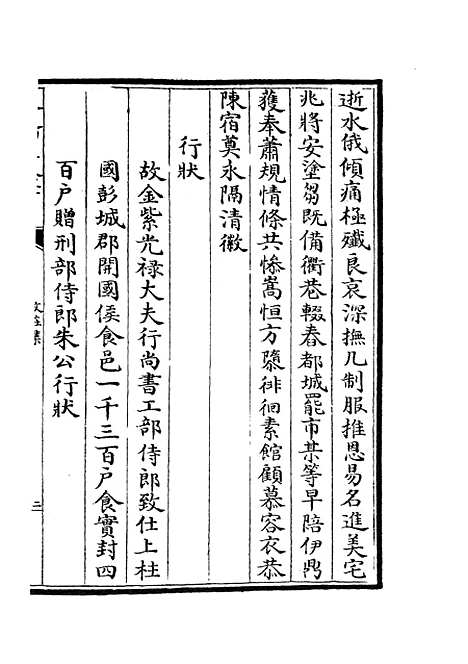 逝水俄傾痛極殲良哀深撫几制服推恩易名進美宅
兆將安塗芻既備衢巷輟舂都城罷市某等早陪伊鼎
蒦奉蕭規情條共慘嵩恒方隳徘徊素館顧慕容衣恭
陳宿奠永隔清徽
行狀
故金紫光祿大夫行尚書工部侍郎致仕上柱
國彭城郡開國侯食邑一千三百戶食實封四
百戶贈刑部侍郎朱公行狀
文莊集
三